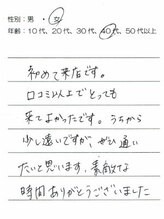 性別：男 ・ 女
年齢：10代、20代、30代、40代、50代以上
初めて来店です。
口コミ以上でとっても
来てよかったです。うちから
少し遠いですが、ぜひ通い
たいと思います。素敵な
時間ありがとうございました